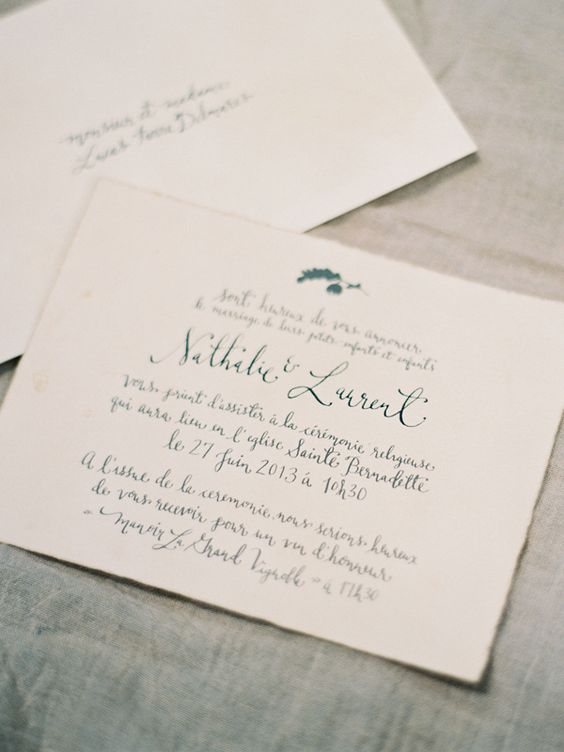 monsieur et madame
Lucas Terra Delmares
sont heureux de vous annoncer
le mariage de leurs petits-enfants et enfants
Nathalie & Laurent
vous prient d'assister à la cérémonie religieuse
qui aura lieu en l'église Sainte Bernadette
le 27 Juin 2013 à 10h30
A l'issue de la ceremonie, nous serions heureux
de vous recevoir pour un vin d'honneur
"Manoir La Grand Vignoble" à 11h30